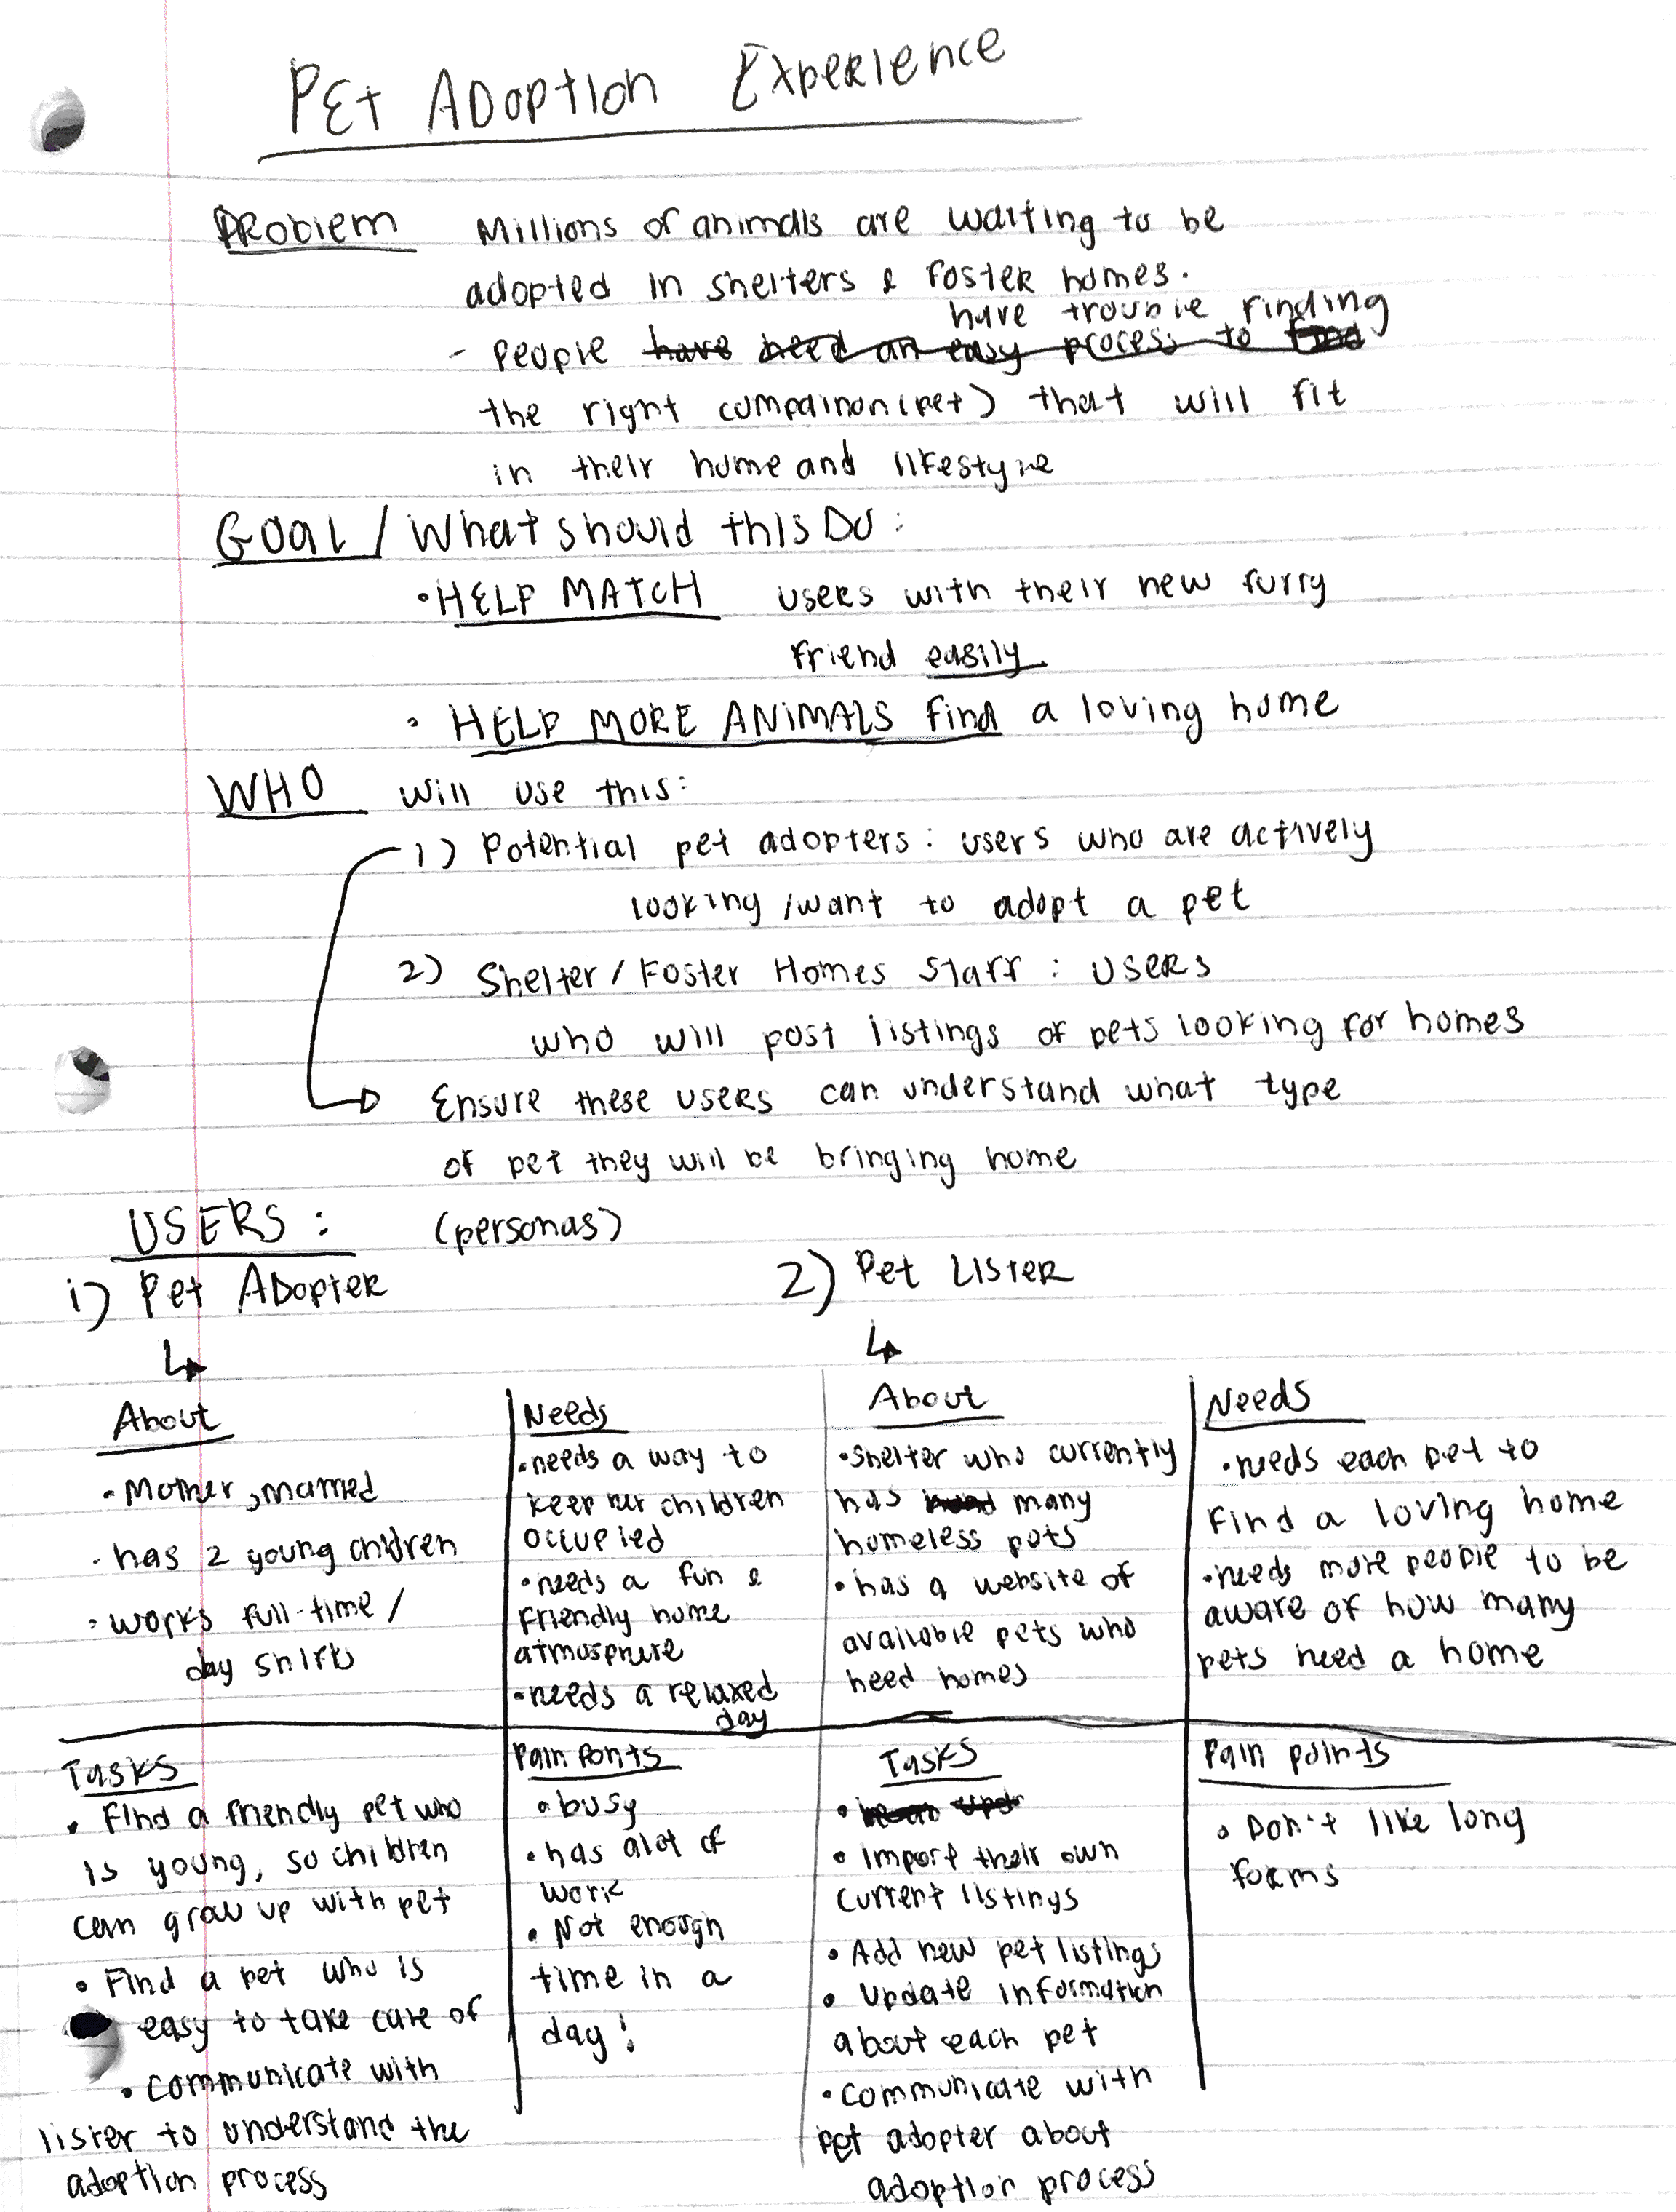 PEt ADOPtION ExpeRIENCE
PRoblem Millions of animals are waiting to be
adopted in shelters & foster homes.
have trouble finding
- People have need an easy process to find
the right compainon (pet) that will fit
in their home and lifestyle
GOAL / What should this Do:
• HELP MATCH users with their new furry
friend easily
• HELP MORE ANIMALS find a loving home
WHO will use this:
1) Potential pet adopters: users who are actively
looking /want to adopt a pet
2) Shelter / Foster Homes Staff: users
who will post listings of pets looking for homes
Ensure these users can understand what type
of pet they will be bringing home
USERS: (personas)
1) Pet ADopter
About
• Mother, married
• has 2 young children
• works full-time /
day shifts
Needs
• needs a way to
keep her children
occupied
• needs a fun &
friendly home
atmosphere
• needs a relaxed
day
Tasks
• Find a friendly pet who
is young, so children
can grow up with pet
• Find a pet who is
easy to take care of
• communicate with
lister to understand the
adoption process
Pain Ponts
• busy
• has alot of
work
• Not enough
time in a
day!
2) Pet Lister
About
• Shelter who currently
has many
homeless pets
• has a website of
available pets who
need homes
Needs
• needs each pet to
find a loving home
• needs more people to be
aware of how many
pets need a home
Tasks
• Import their own
current listings
• Add new pet listings
• Update information
about each pet
• communicate with
pet adopter about
adoption process
Pain points
• Don't like long
forms